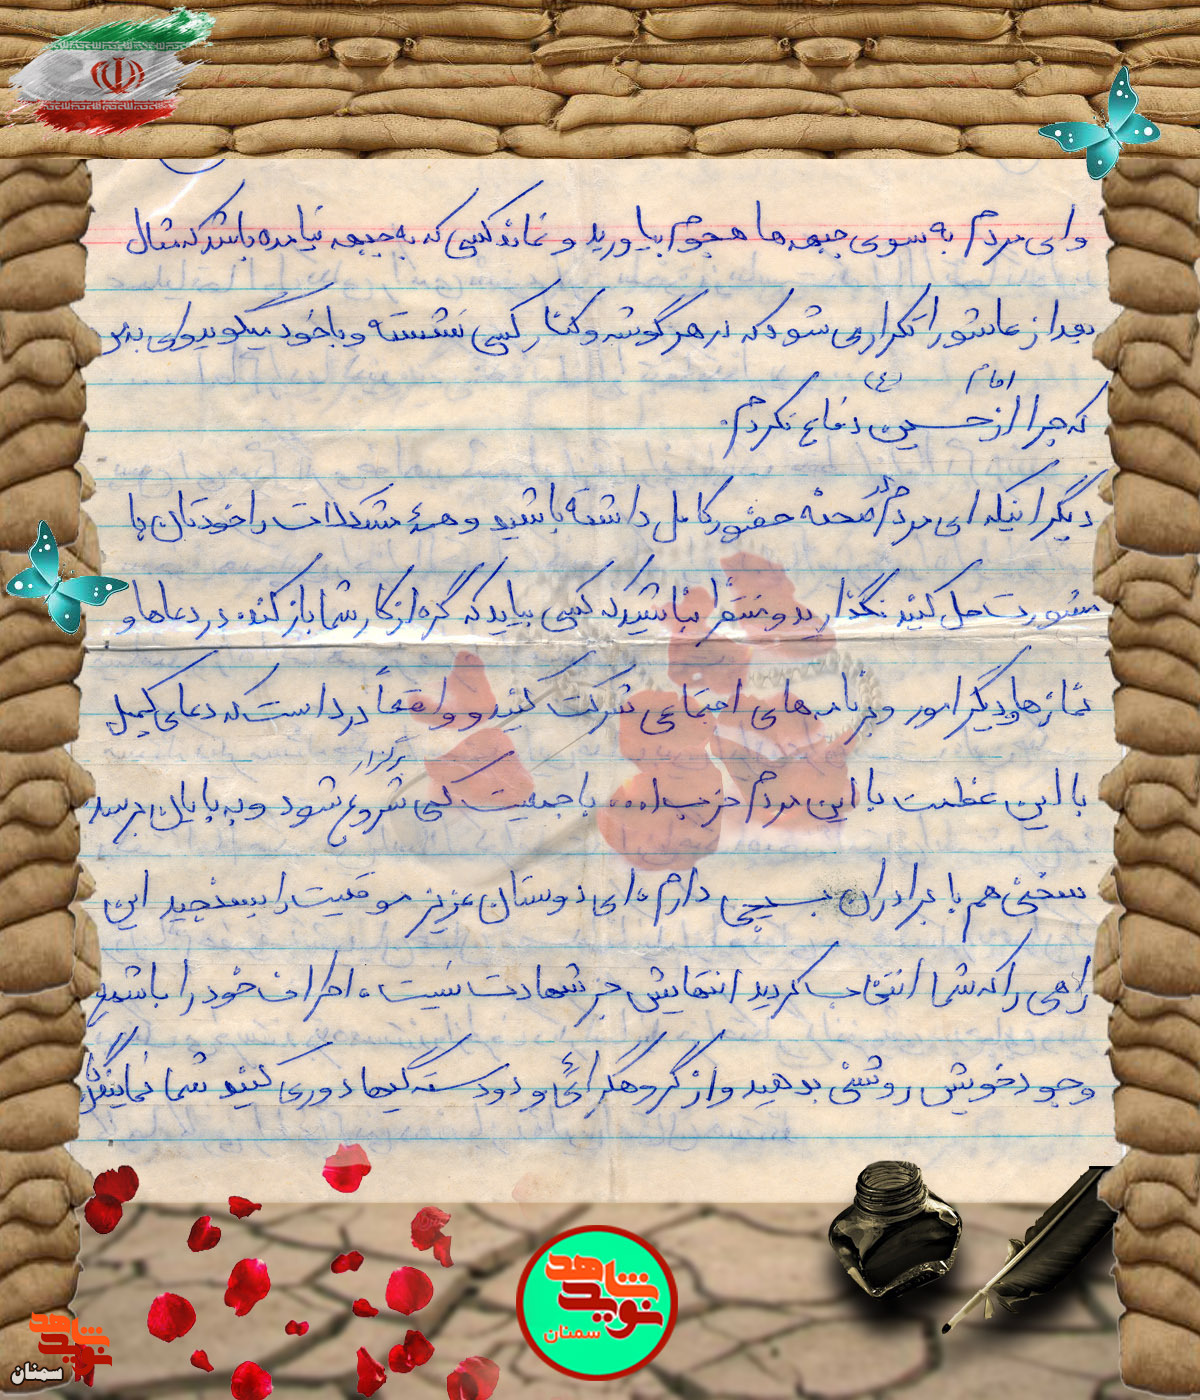 وای مردم به سوی جبهه ها هجوم بیاورید و نماند کسی که به جبهه نیامده باشد که مثال
بعد از عاشورا تکرار می شود که در هر گوشه و کنار کسی نشسته و با خود میگوید وای بر من
امام (ع)
که چرا از حسین دفاع نکردم.
دیگر اینکه ای مردم در صحنه حضور کامل داشته باشید و همهٔ مشکلات را خودتان با
مشورت حل کنید نگذارید و منتظر نباشید که کسی بیاید که گره از کار شما باز کند. در دعاها و
نمازها و دیگر امور و برنامه های اجتماعی شرکت کنید و واقعاً درد است که دعای کمیل
برگزار
با این عظمت با این مردم حزب ا... با جمعیت کمی شروع شود و به پایان برسد
سخنی هم با برادران بسیجی دارم، ای دوستان عزیز موقعیت را بسنجید این
راهی را که شما انتخاب کردید انتهایش جز شهادت نیست، اطراف خود را با شمع
وجود خویش روشنی بدهید و از گروهگرائی و دودستگیها دوری کنید شما نمایندگان
نوید شاهد
سمنان
نوید شاهد
سمنان